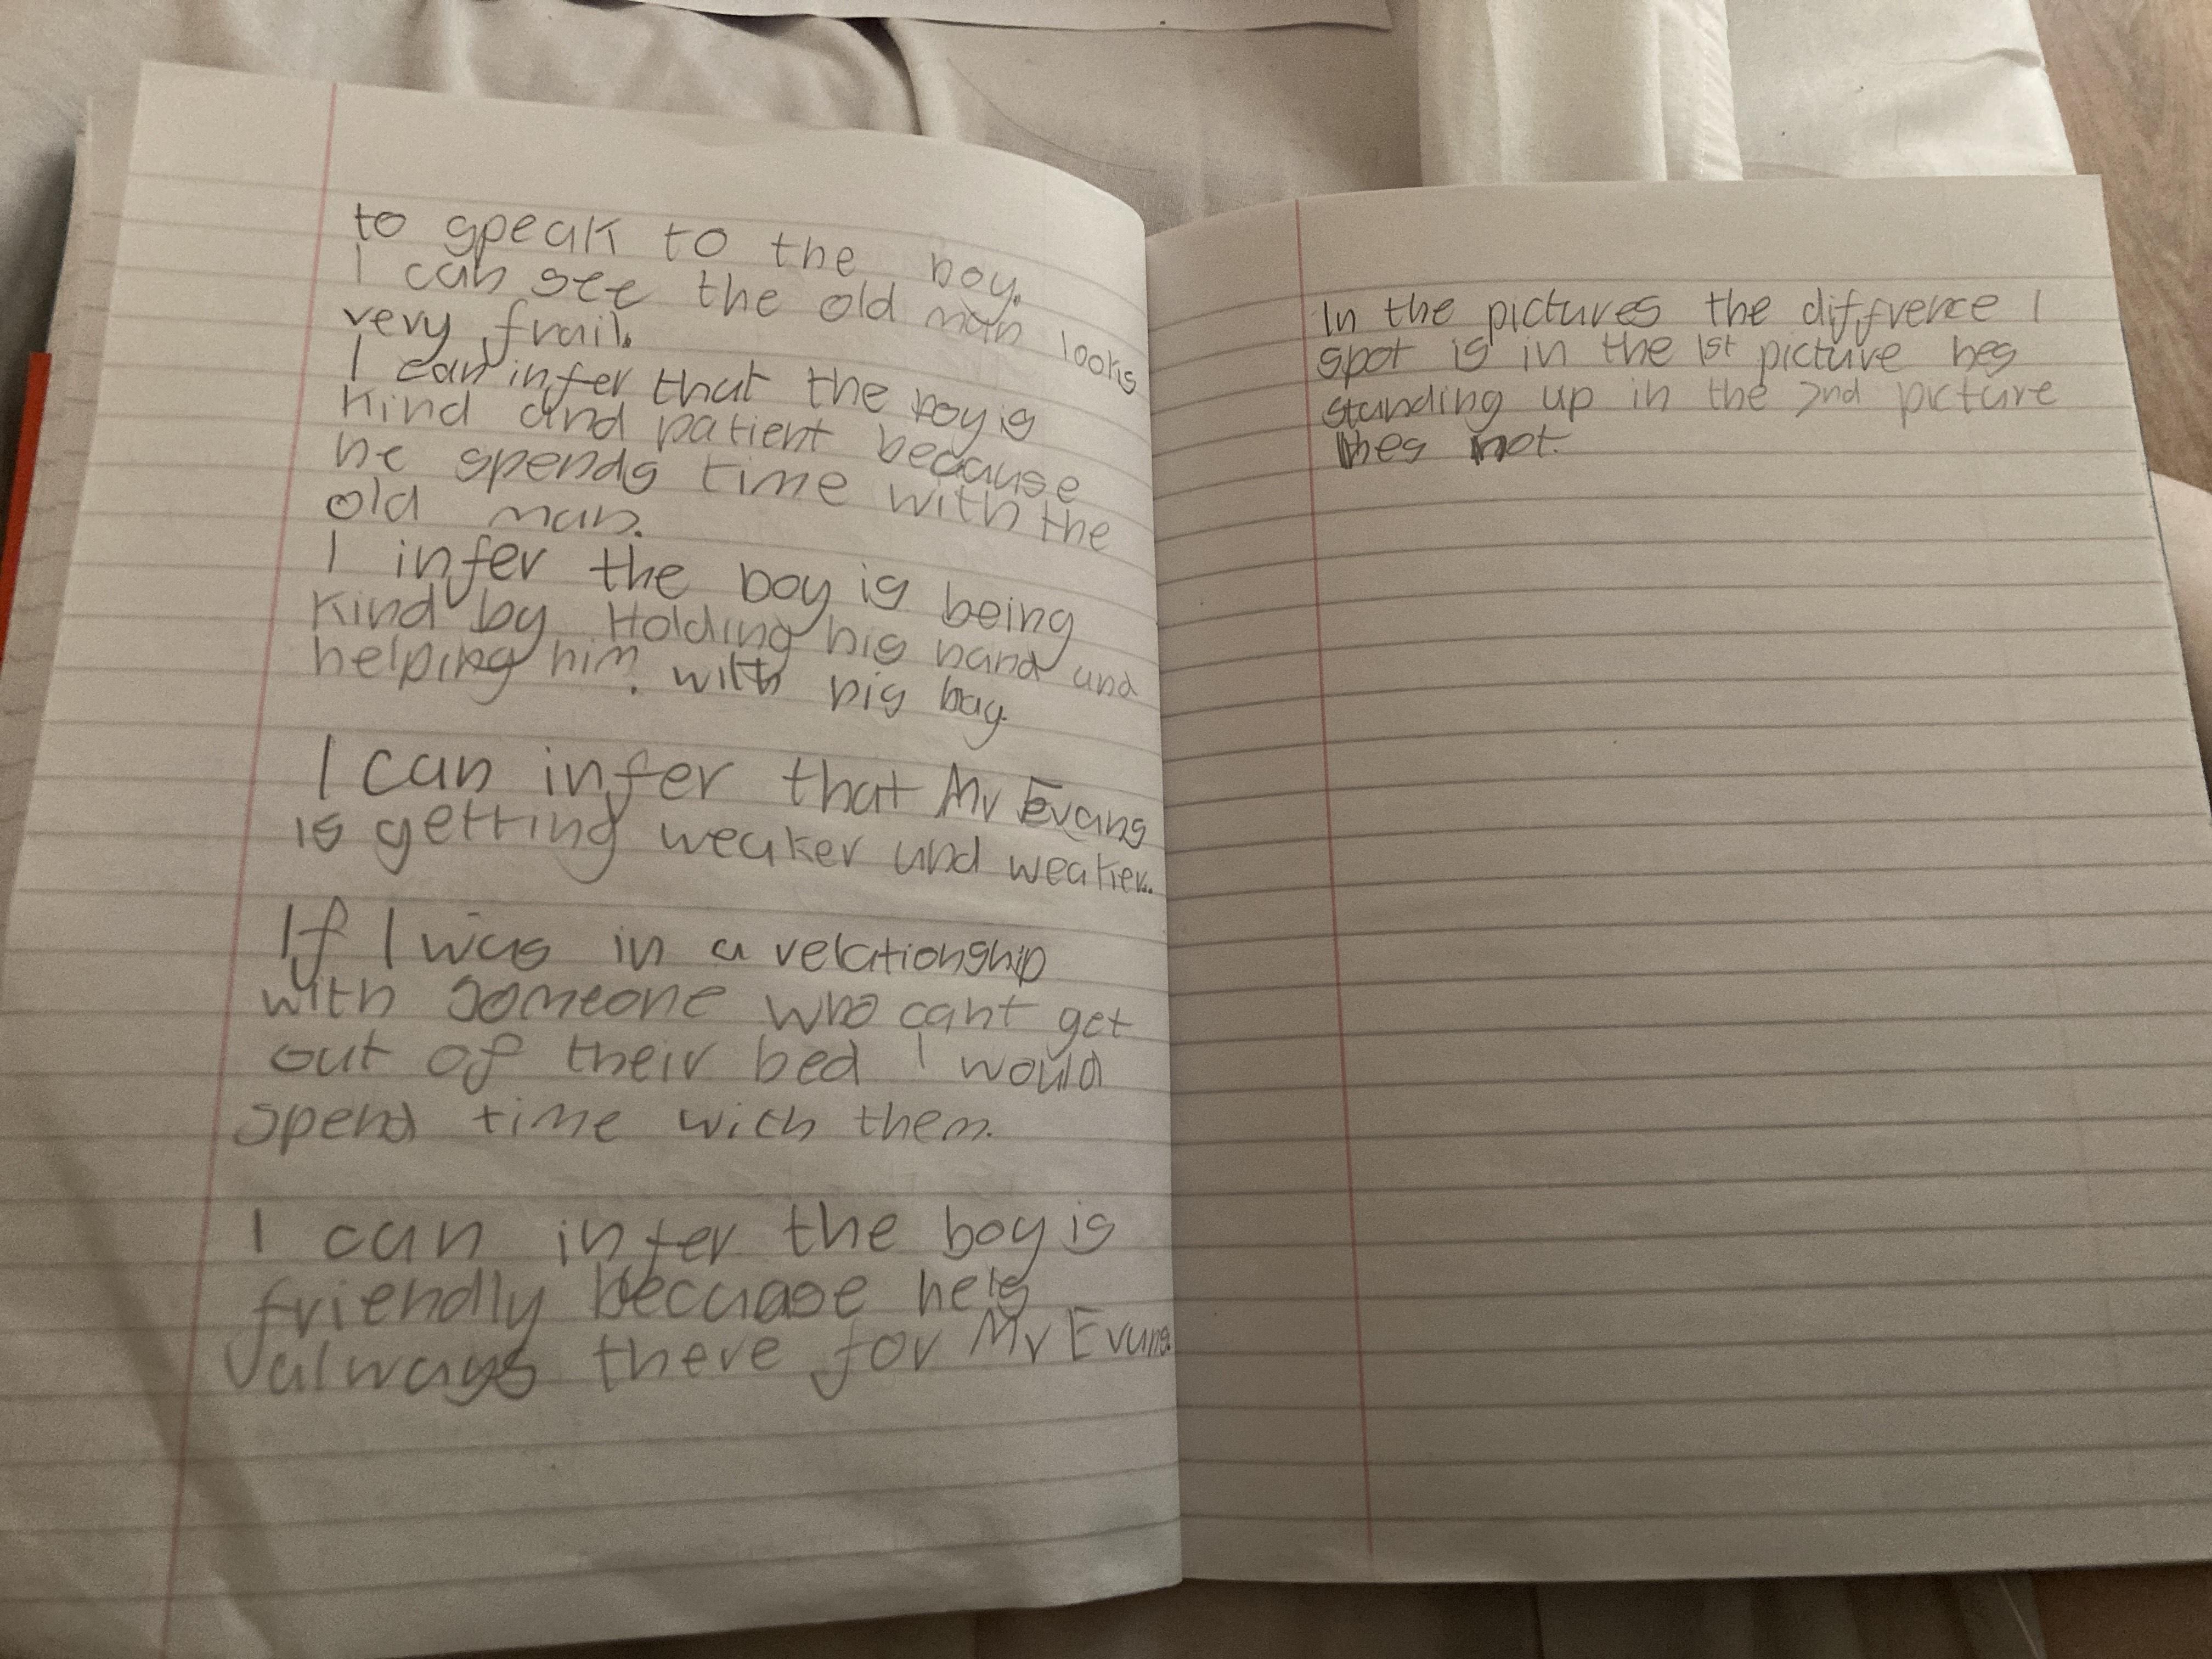 to speak to the boy.
I can see the old man looks
very frail.
I can infer that the boy is
kind and patient because
he spends time with the
old man.
I infer the boy is being
kind by Holding his hand and
helping him. with his bag.
I can infer that Mr Evans
is getting weaker and weaker.
If I was in a relationship
with someone who cant get
out of their bed I would
spend time with them.
I can infer the boy is
friendly because he is
always there for Mr Evans.
In the pictures the diffrence I
spot is in the 1st picture hes
standing up in the 2nd picture
hes not.